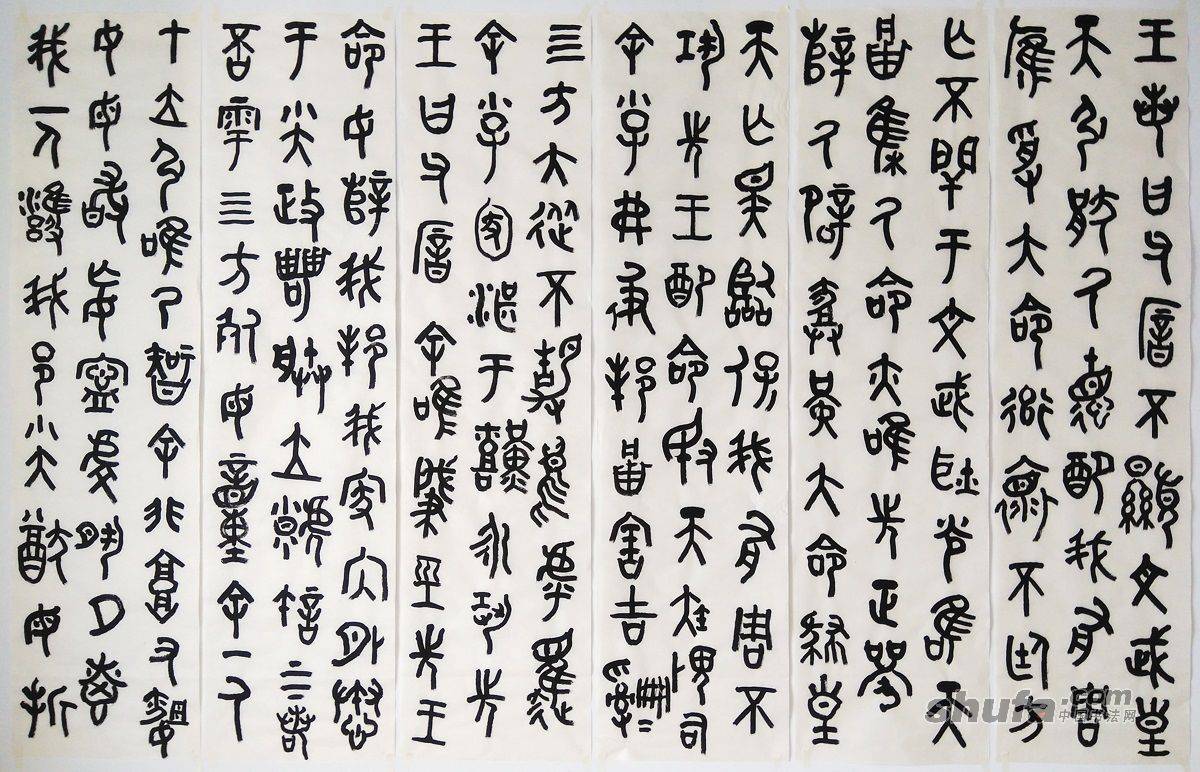 王若曰父厝不顯文武皇
天弘猒厥德配我有周
膺受大命率懷不廷方
亡不閈于文武耿光唯天
集厥命亦唯先正
辥厥辟堇大命肆皇
天亡斁臨保我有周不
巩先王配命敃天疾畏司
余小子弗彶邦害吉
亖方大從不靜烏虖趯
余小子圂湛于艱永巩先
王曰父厝余唯肇巠先王
命女辥我邦我家內外惷
于小大政甹朕立虩許上下若
否雩亖方死毋童余一人
才立弘唯乃智余非庸又昏
女毋敢妄寧虔夙夕惠
我一人雝我邦小大猷毋折
shufa.com
中国书法网